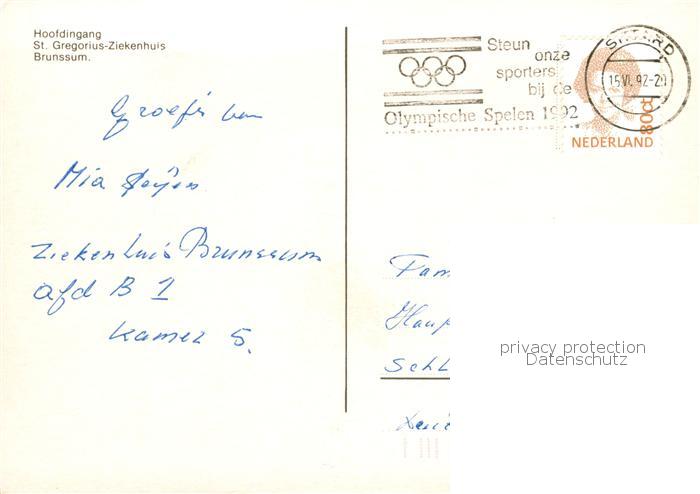 Hoofdingang
St. Gregorius-Ziekenhuis
Brunssum.
Steun
onze
sporters
bij de
Olympische Spelen 1992
SITTARD
15.VI.92-20
80ct
NEDERLAND
Groetjes van
Mia
Ziekenhuis Brunssum
afd B 1
Kamer 5.
Fam
Haup
Schl
privacy protection
Datenschutz